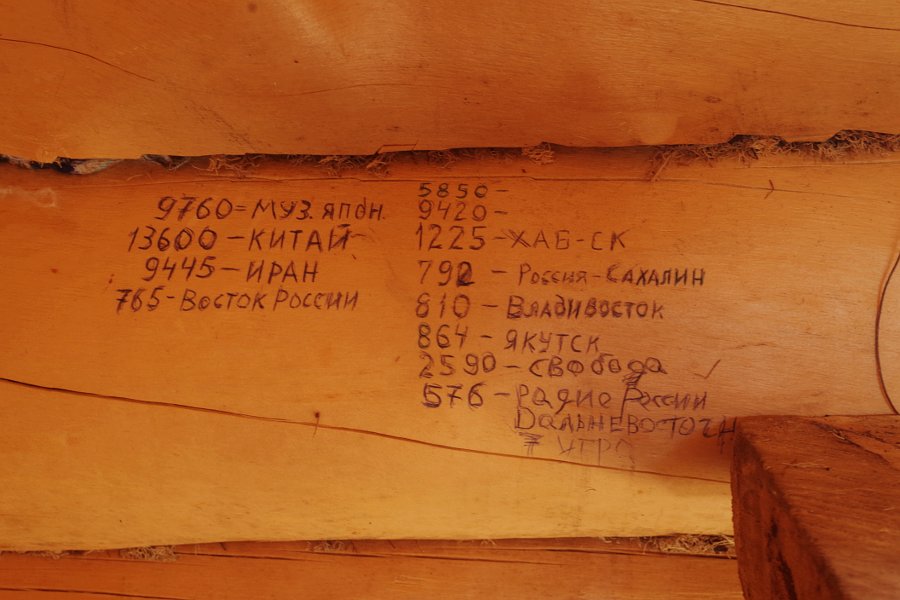 9760=МУЗ. ЯПОН.
13600-КИТАЙ
9445-ИРАН
765-ВОСТОК РОССИИ
5850-
9420-
1225-ХАБ-СК
792 - РОССИЯ-САХАЛИН
810-ВЛАДИВОСТОК
864-ЯКУТСК
2590-СВОбода
576-Радио России
ДАЛЬНЕВОСТОЧН
УТРО